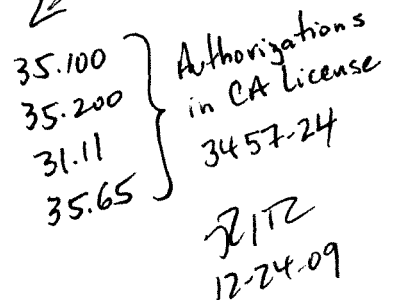 35.100
35.200
31.11
35.65
Authorizations
in CA License
3457-24
12-24-09